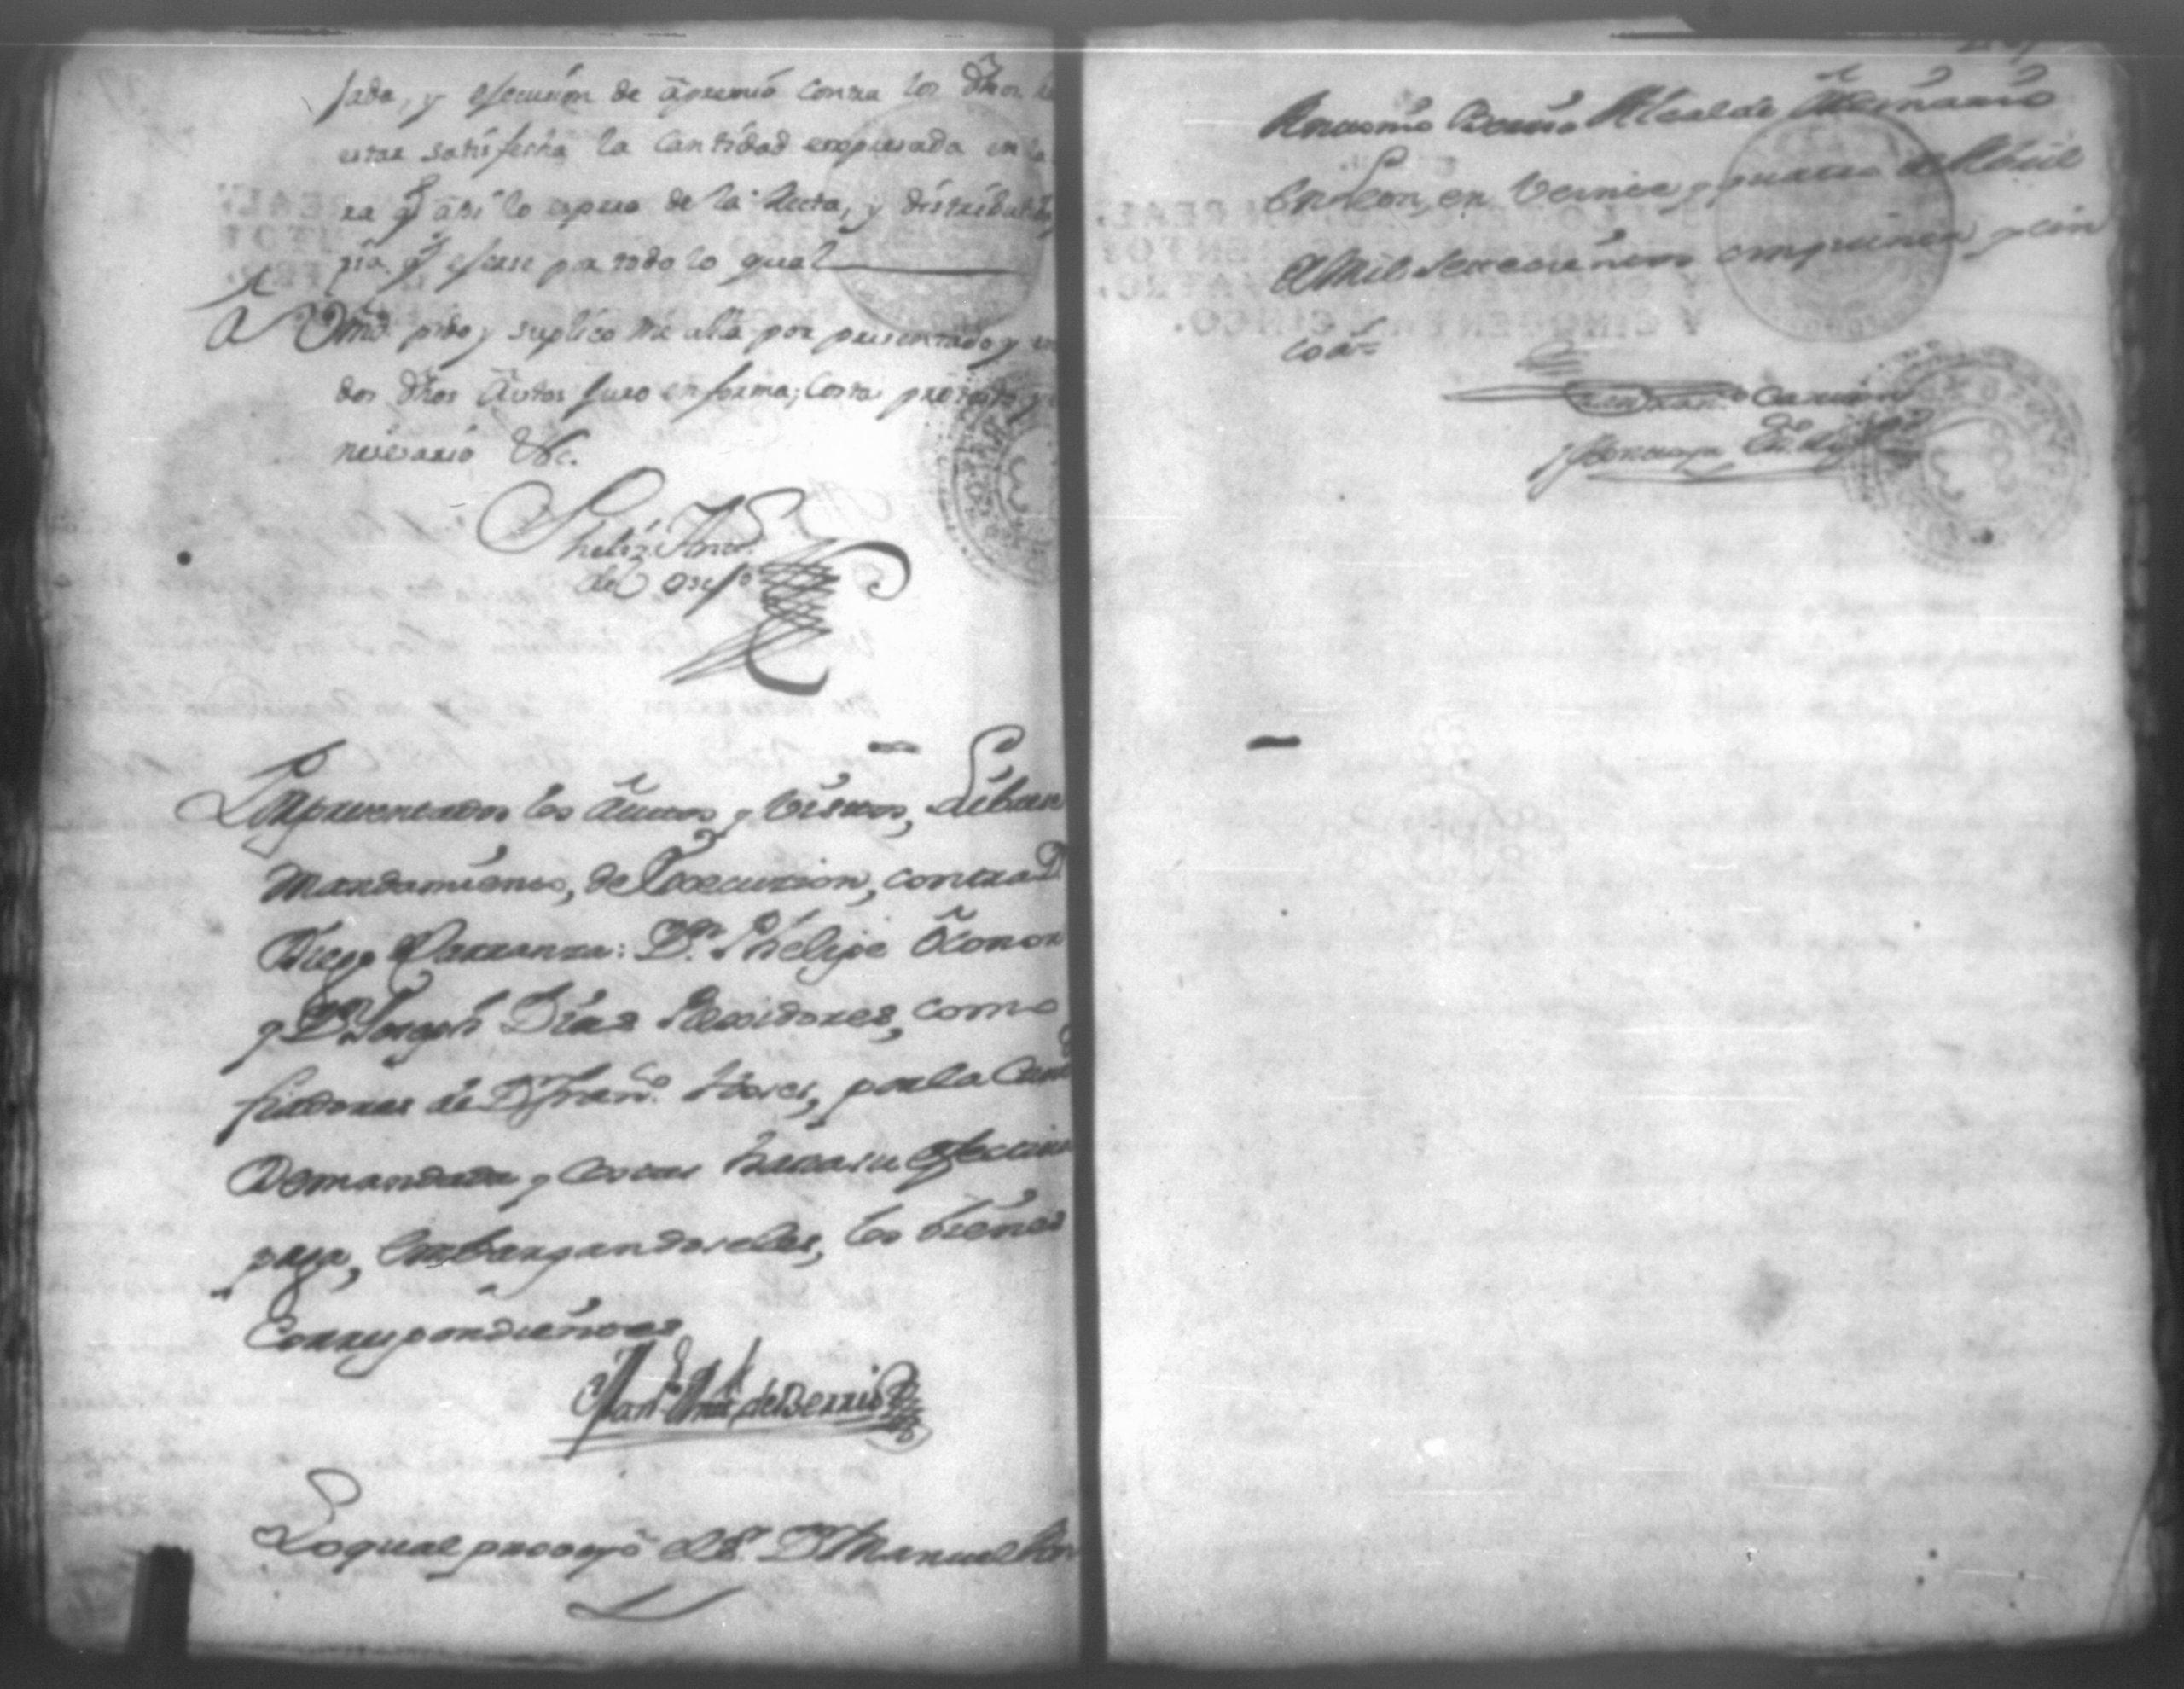 sada, y esecusión de apremio contra los dhos
estar satisfecha la Cantidad expresada en la
ra q̃ asi lo espero de la Recta, y distributib
sia q̃ eserse pa todo lo qual
A Vmd pido y suplico me alla por presentado y
dos dhos Autos Juro en forma, Costa protesto y
nesesario &c.
Pheliz Ano.
del
Por presentados los Autos y Vistos, Libran
Mandamiento, de Execucion, contra D
Diego Carranza: Dn. Phelipe Oconor
y Dn. Joseph Dias Rexidores, como
fiadores de D Frano. , por la Cant
Demandada y Costas hasta su efectiva
paga, Embargandoseles, los bienes
Correspondientes
Manl. Anto. de Berrio
Lo qual proveyó el Sr. Dn Manuel An
Antonio Berrio Alcalde Ordinario
en Leon, en Veinte y quatro de Abril
de Mil Setecientos cinquenta y cin
co as.
Carrion